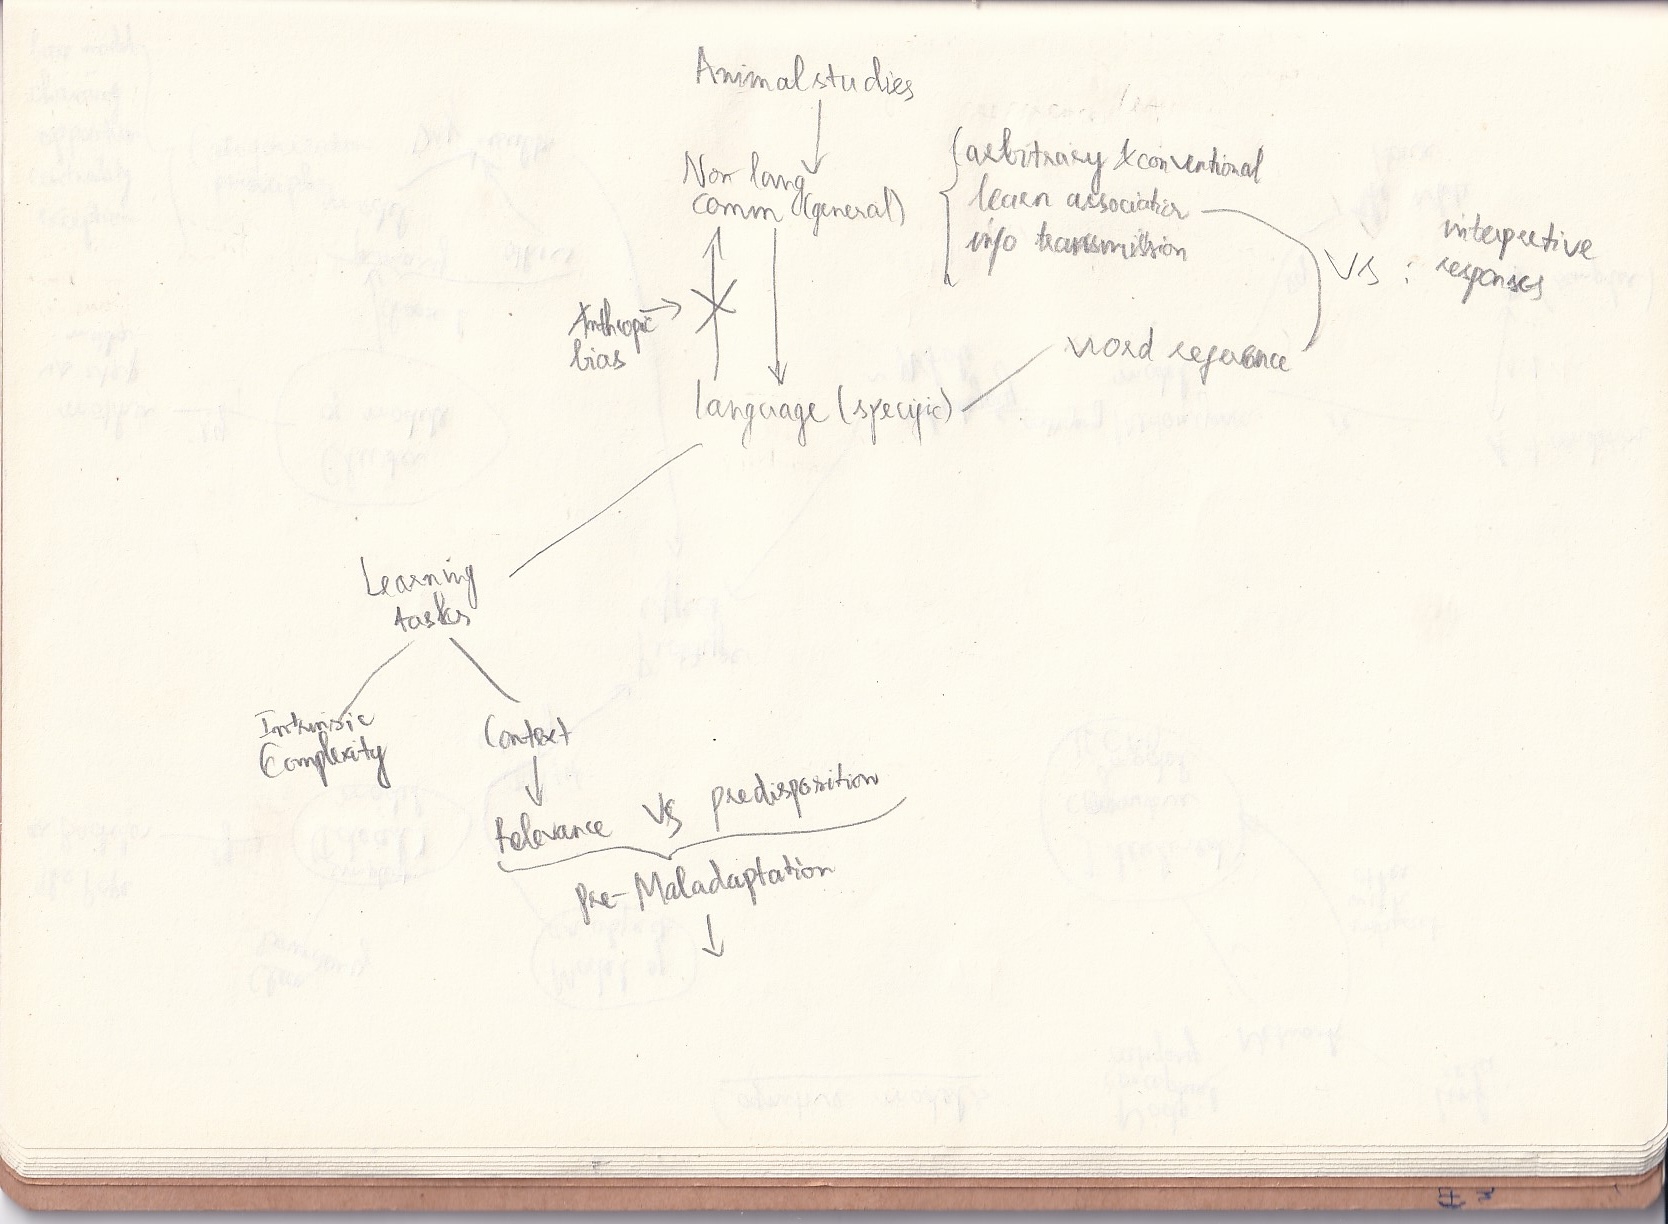 Animal studies
Non lang
comm (general)
arbitrary & conventional
learn association
info transmission
VS :
interpretive
responses
Anthropic
bias
word reference
language (specific)
Learning
tasks
Intrinsic
Complexity
Context
Relevance VS predisposition
Pre-Maladaptation